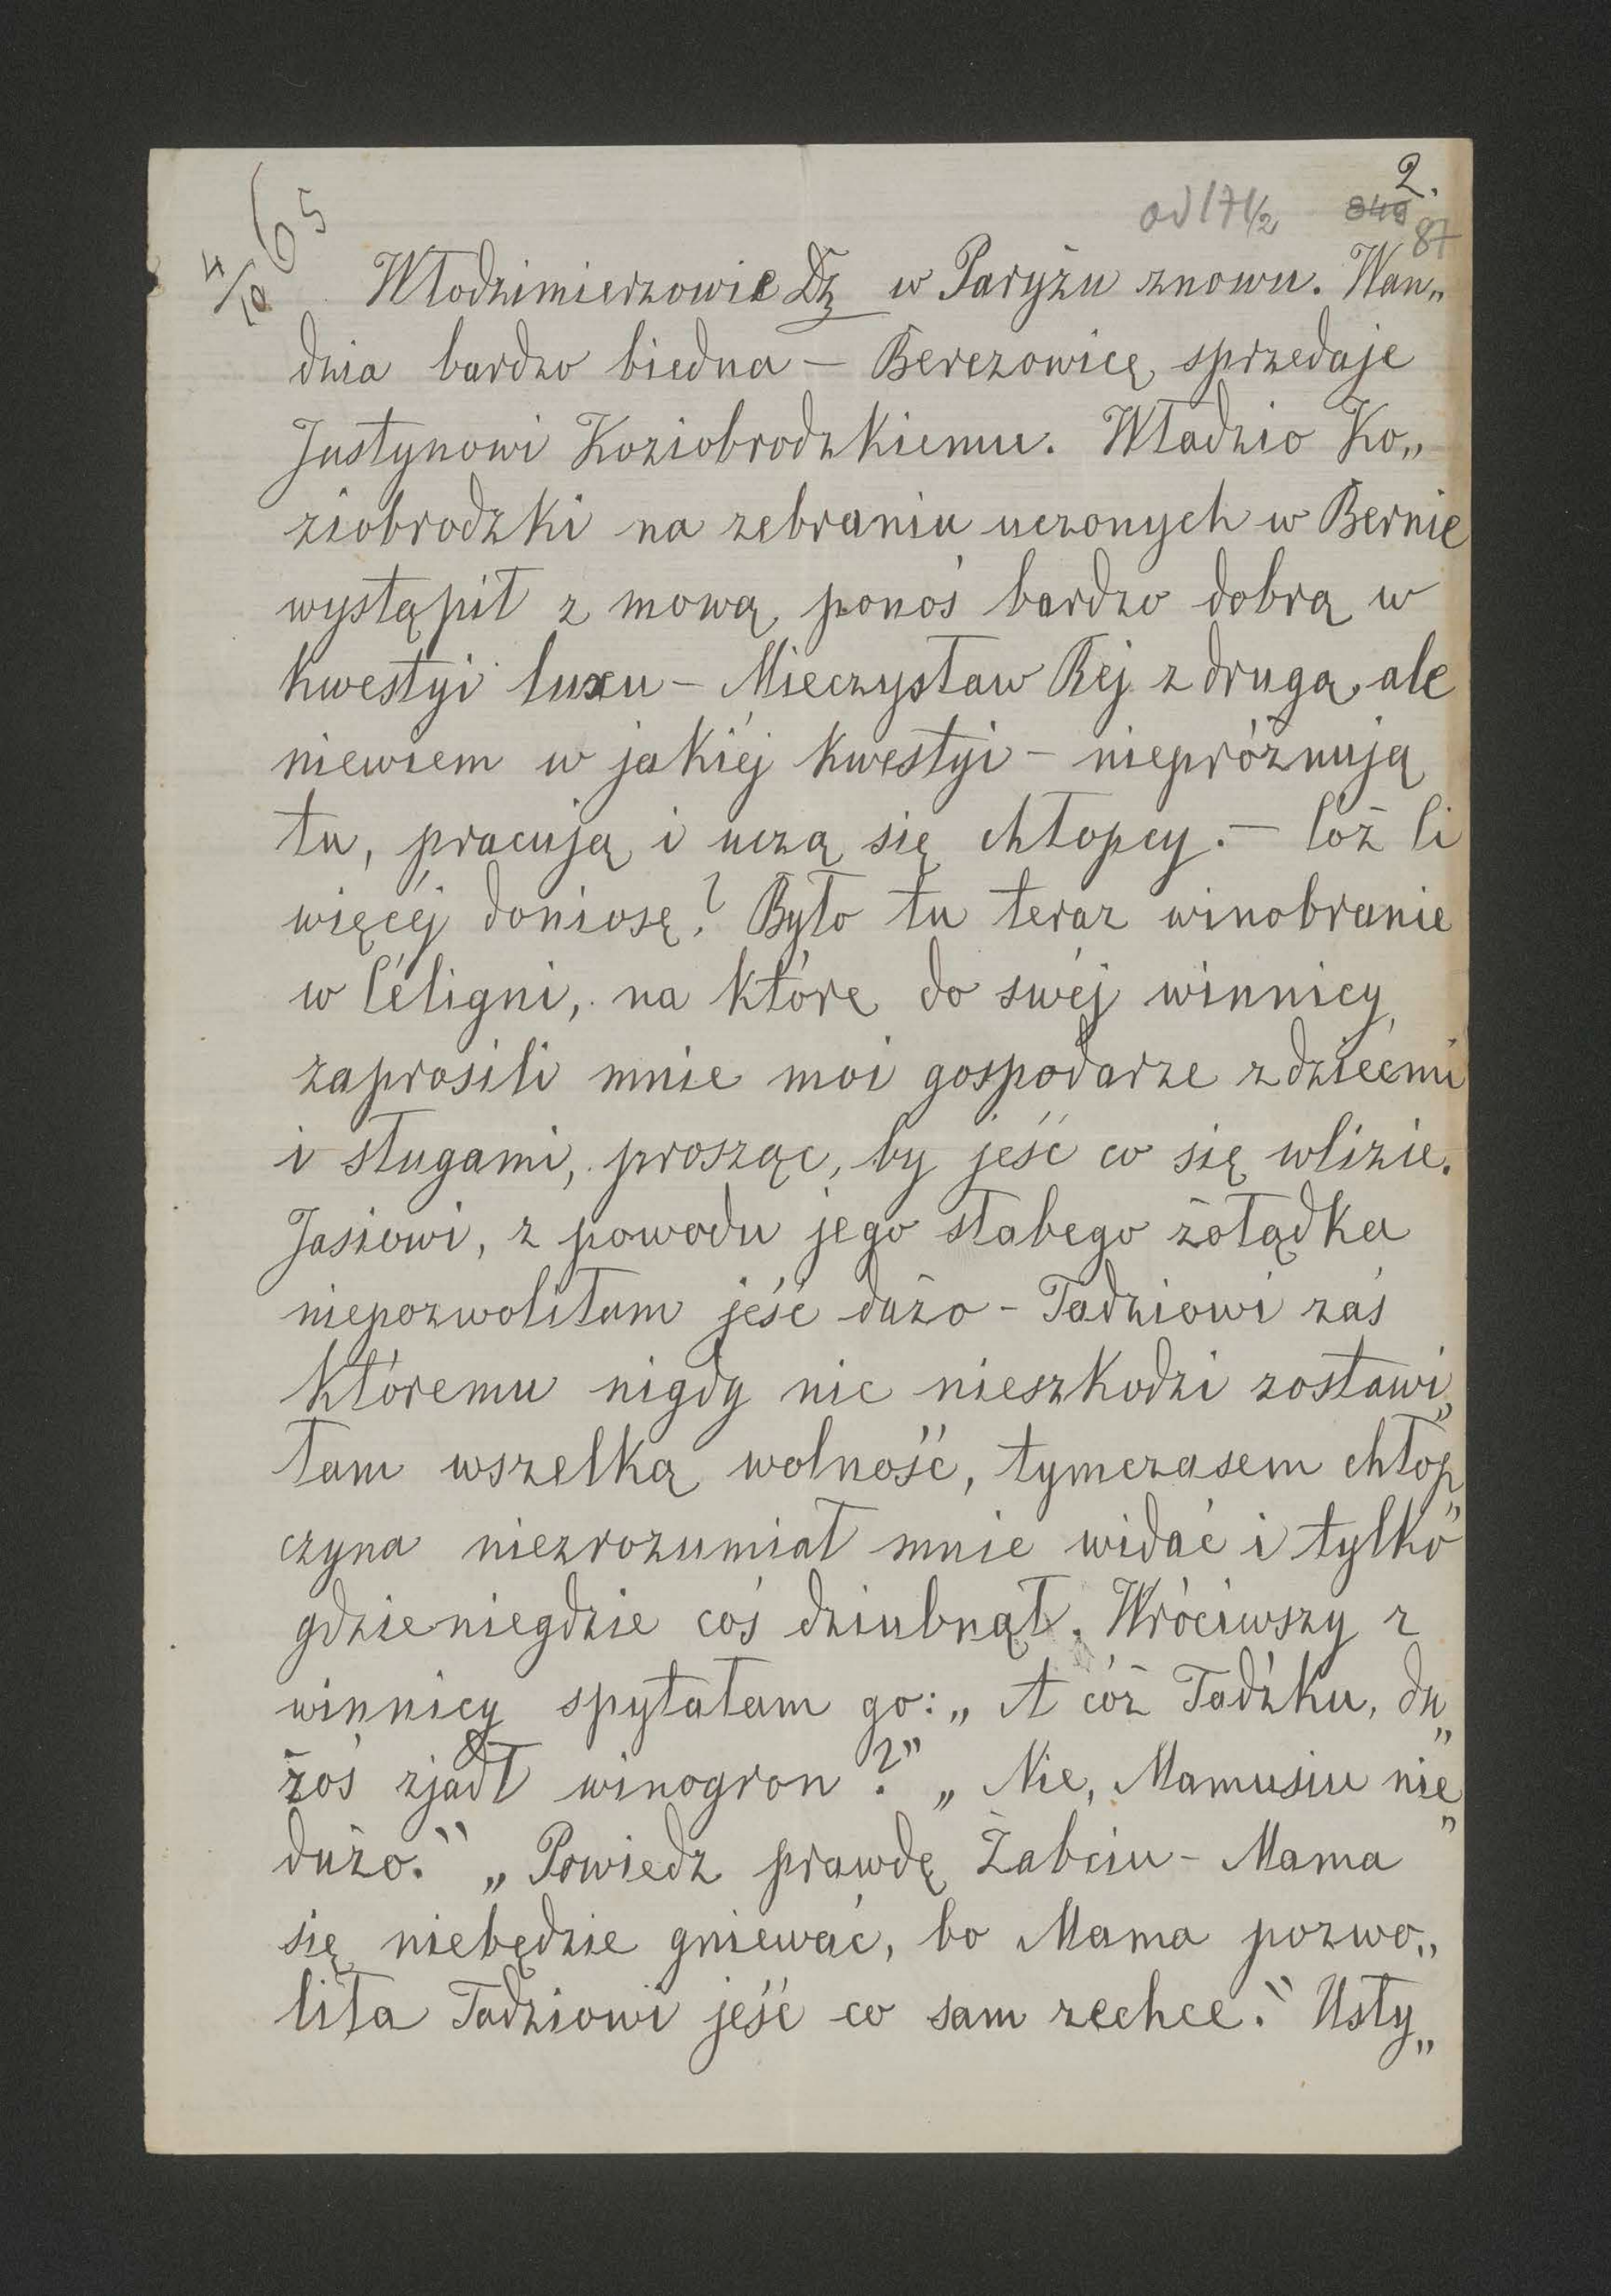 2.
od 17 1/2 849 87
4/10 65
Włodzimierzowie Dz w Paryżu znowu. Wan„
dzia bardzo biedna — Berezowicę sprzedaje
Justynowi Koziobrodzkiemu. Władzio Ko„
ziobrodzki na zebraniu uczonych w Bernie
wystąpił z mową, ponoś bardzo dobrą w
kwestyi luxu — Mieczysław Rej z drugą, ale
niewiem w jakiéj kwestyi — niepróżnują
tu, pracują i uczą się chłopcy. — Cóż Ci
więcéj doniosę? Było tu teraz winobranie
w Céligni, na które do swéj winnicy
zaprosili mnie moi gospodarze z dziećmi
i sługami, prosząc, by jeść co się wlizie.
Jasiowi, z powodu jego słabego żołądka
niepozwoliłam jeść dużo — Tadziowi zaś
któremu nigdy nic nieszkodzi zostawi„
łam wszelką wolność, tymczasem chłop„
czyna niezrozumiał mnie widać i tylko
gdzieniegdzie coś dziubnął. Wróciwszy z
winnicy spytałam go: „A cóż Tadźku, du„
żoś zjadł winogron?" „Nie, Mamusiu nie„
dużo." „Powiedz prawdę Żabciu — Mama
się niebędzie gniewać, bo Mama pozwo„
liła Tadziowi jeść co sam zechce." Usły„